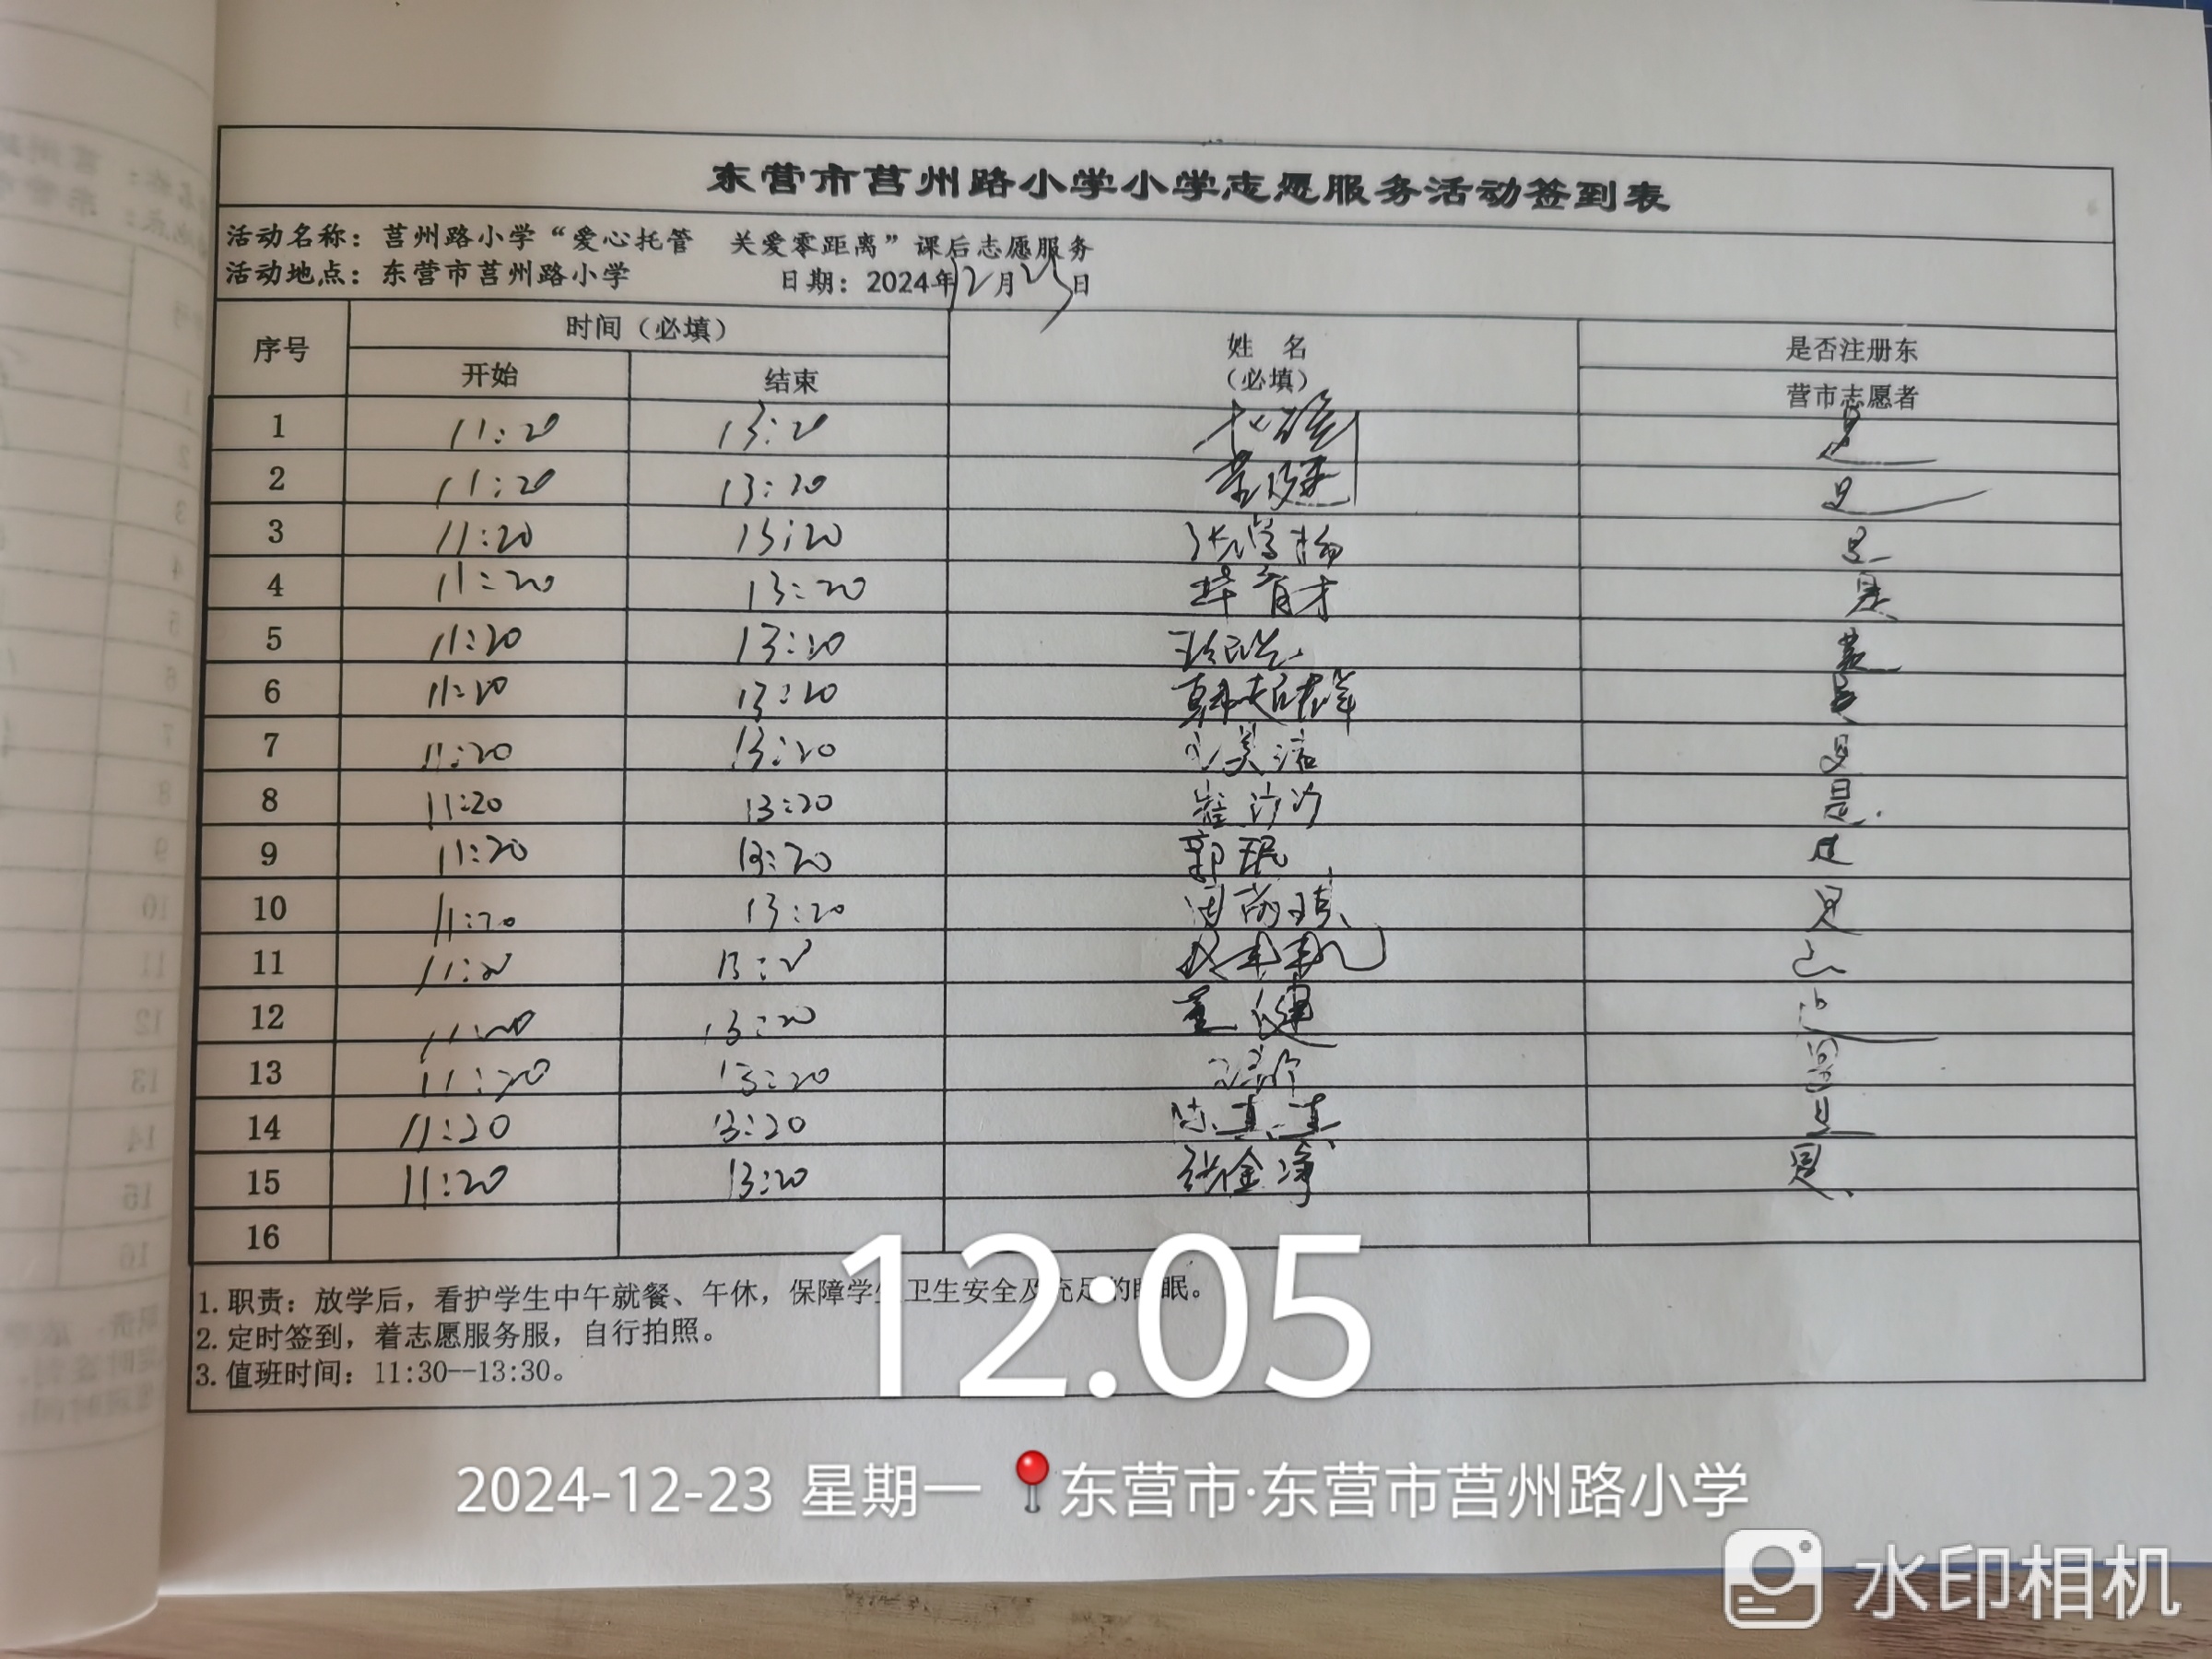 东营市莒州路小学小学志愿服务活动签到表
活动名称：莒州路小学“爱心托管 关爱零距离”课后志愿服务
活动地点：东营市莒州路小学 日期：2024年12月23日
序号 时间（必填） 姓 名 （必填） 是否注册东
开始 结束 营市志愿者
1 11:20 13:20 是
2 11:20 13:20 是
3 11:20 13:20 张学梅 是
4 11:20 13:20 毕育才 是
5 11:20 13:20 是
6 11:20 13:20 是
7 11:20 13:20 是
8 11:20 13:20 崔汐汐 是.
9 11:20 13:20 郭珉 是
10 11:20 13:20 是
11 11:20 13:20 是
12 11:20 13:20 董健 是
13 11:20 13:20 是
14 11:20 13:20 陈真真 是
15 11:20 13:20 张金净 是
16
1. 职责：放学后，看护学生中午就餐、午休，保障学生卫生安全及充足的睡眠。
2. 定时签到，着志愿服务服，自行拍照。
3. 值班时间：11:30--13:30。
12:05
2024-12-23 星期一 东营市·东营市莒州路小学
水印相机